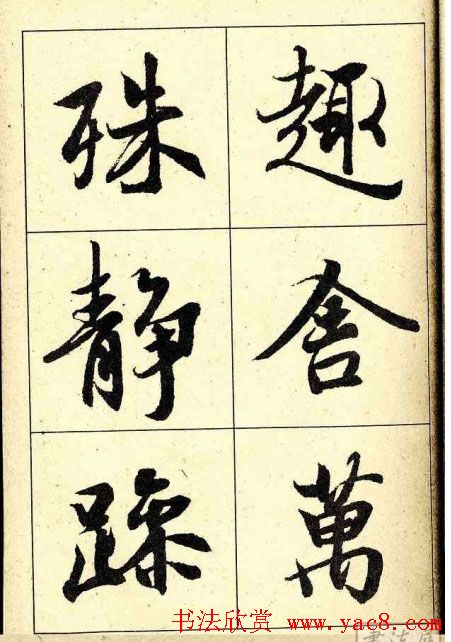 趣舍萬
殊靜躁
书法欣赏 www.yac8.com